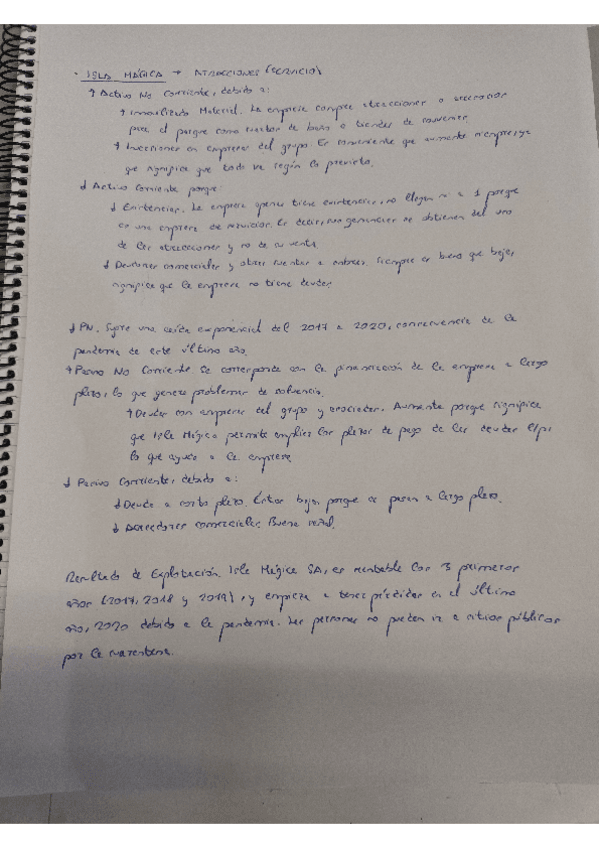 · ISLA MÁGICA → ATRACCIONES (SERVICIO)
↑ Activo No Corriente, debido a:
↑ Inmovilizado Material. La empresa compra atracciones o decoración
para el parque como cuartos de baño o tiendas de souvenirs.
↑ Inversiones en empresas del grupo. Es conveniente que aumente siempre, ya
que significa que todo va según lo previsto.
↓ Activo Corriente porque:
↓ Existencias. La empresa apenas tiene existencias, no llegan ni a 1 porque
es una empresa de servicios. Es decir, sus ganancias se obtienen del uso
de las atracciones y no de su venta
↓ Deudores comerciales y otras cuentas a cobrar. Siempre es bueno que bajen
significa que la empresa no tiene deudas.
↓ PN. Sufre una caída exponencial del 2017 a 2020, consecuencia de la
pandemia de este último año.
↑ Pasivo No Corriente se corresponde con la financiación de la empresa a largo
plazo, lo que genera problemas de solvencia.
↑ Deudas con empresas del grupo y asociadas. Aumenta porque significa
que Isla Mágica permite ampliar los plazos de pago de las deudas l/p,
lo que ayuda a la empresa
↓ Pasivo Corriente, debido a:
↓ Deuda a corto plazo. Están bajas porque se pasan a largo plazo.
↓ Acreedores comerciales. Buena señal.
Resultado de Explotación Isla Mágica SA, es rentable los 3 primeros
años (2017, 2018 y 2019), y empieza a tener pérdidas en el último
año, 2020 debido a la pandemia. Las personas no pueden ir a sitios públicos
por la cuarentena.